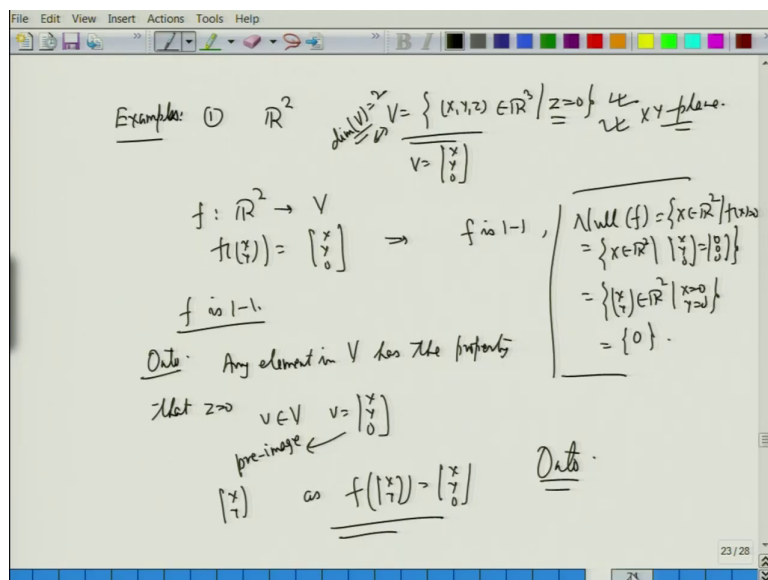 File Edit View Insert Actions Tools Help
Examples: ① ℝ² dim(V)=2 V = { (x,y,z) ∈ ℝ³ | z=0 } xy-plane.
V = [x y 0]
f : ℝ² → V
f([x y]) = [x y 0] ⇒ f is 1-1,
Null(f) = {x∈ℝ² | f(x)=0}
= {x∈ℝ² | [x y 0] = [0 0 0]}
= {[x y] ∈ ℝ² | x=0 y=0}
= {0}.
f is 1-1.
Onto. Any element in V has the property
that z=0 v∈V v = [x y 0]
pre-image
[x y] as f([x y]) = [x y 0] Onto.
23 / 28